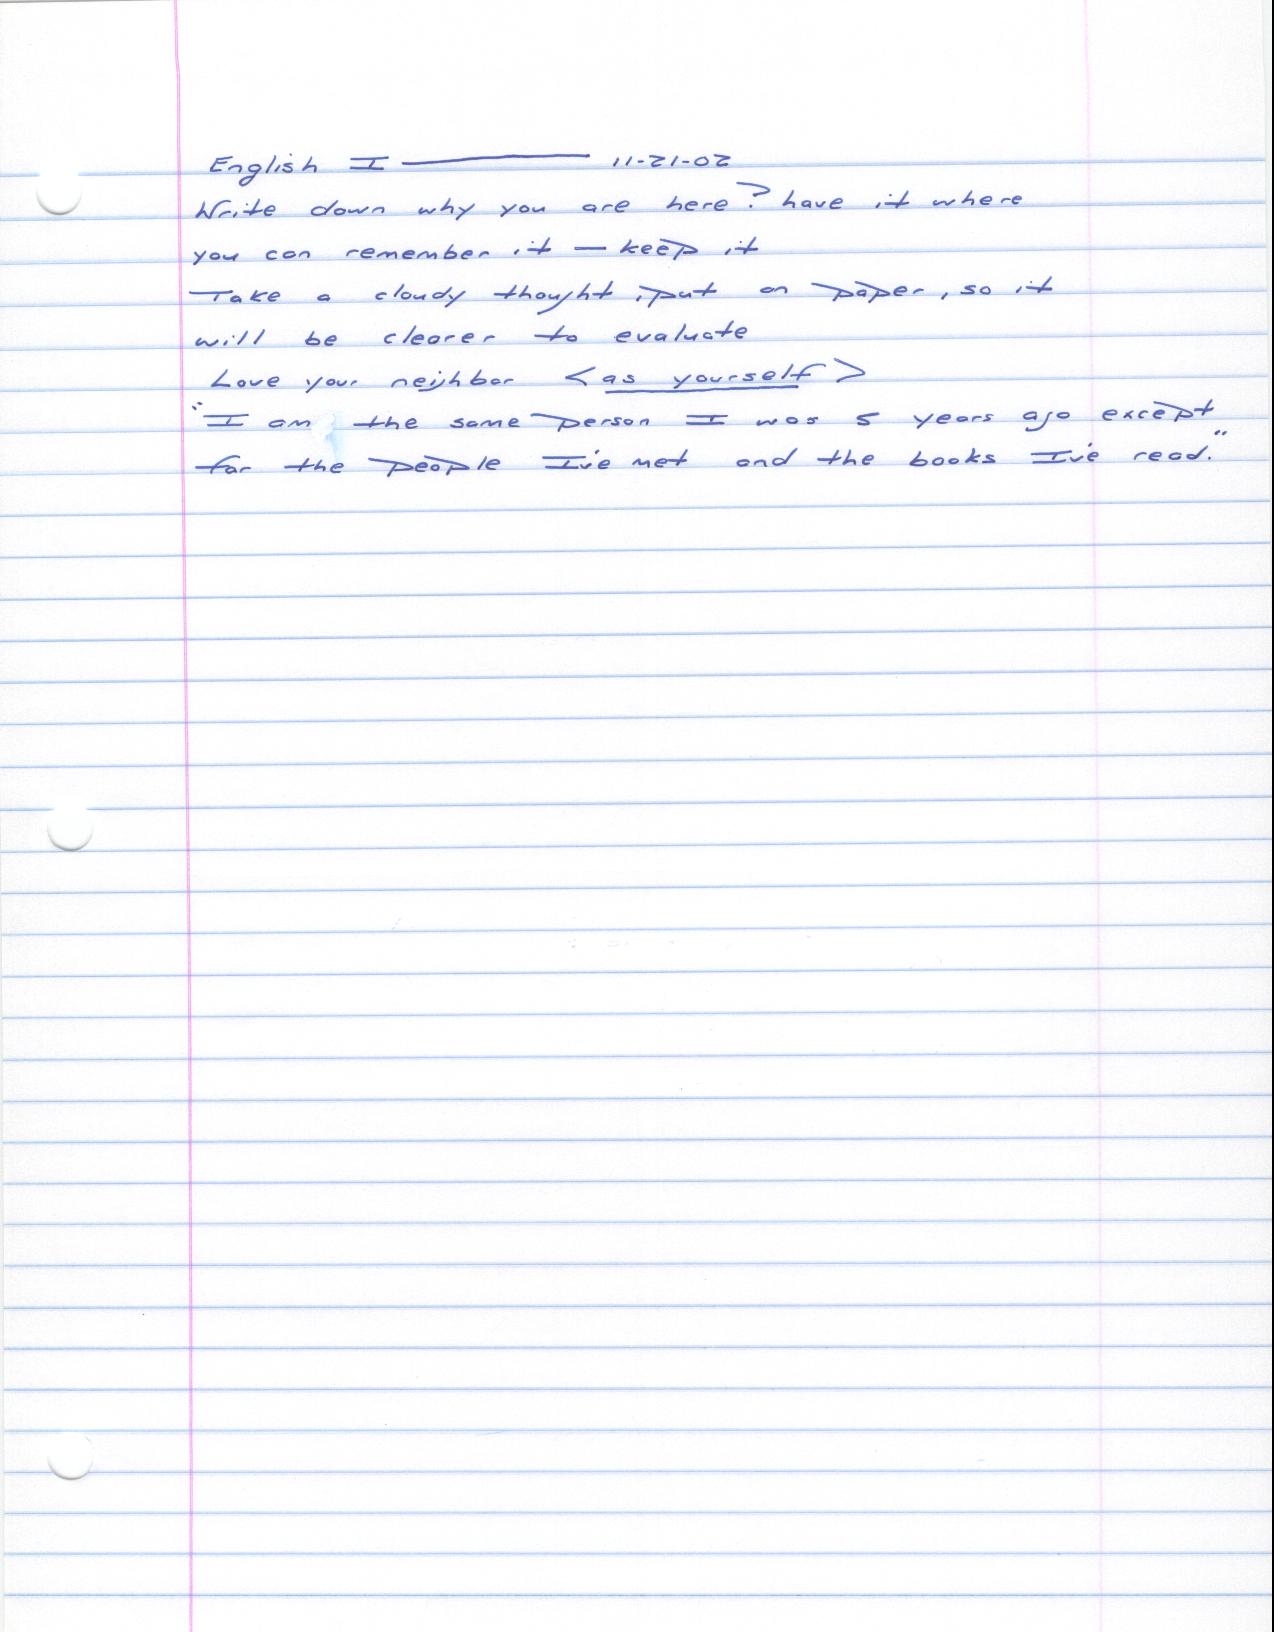 English I ——— 11-21-02
Write down why you are here? have it where
you can remember it — keep it
Take a cloudy thought, put on paper, so it
will be clearer to evaluate
Love your neihbor <as yourself>
"I am the same person I was 5 years ago except
for the people I've met and the books I've read."